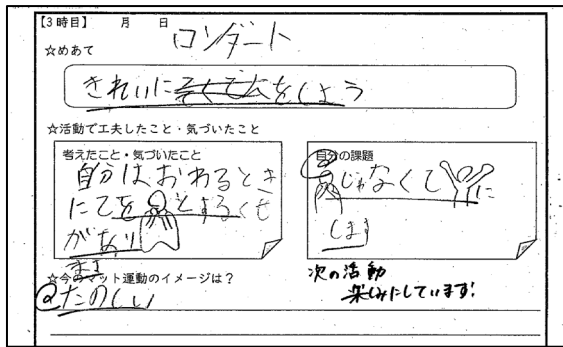 【3時目】 月 日 ロンダート
☆めあて
きれいに をしよう
☆活動で工夫したこと・気づいたこと
考えたこと・気づいたこと
自分はおわるとき
にてを とするくせ
があり
ます
自分の課題
じゃなくて に
します
☆今のマット運動のイメージは?
たのしい
次の活動
楽しみにしています!